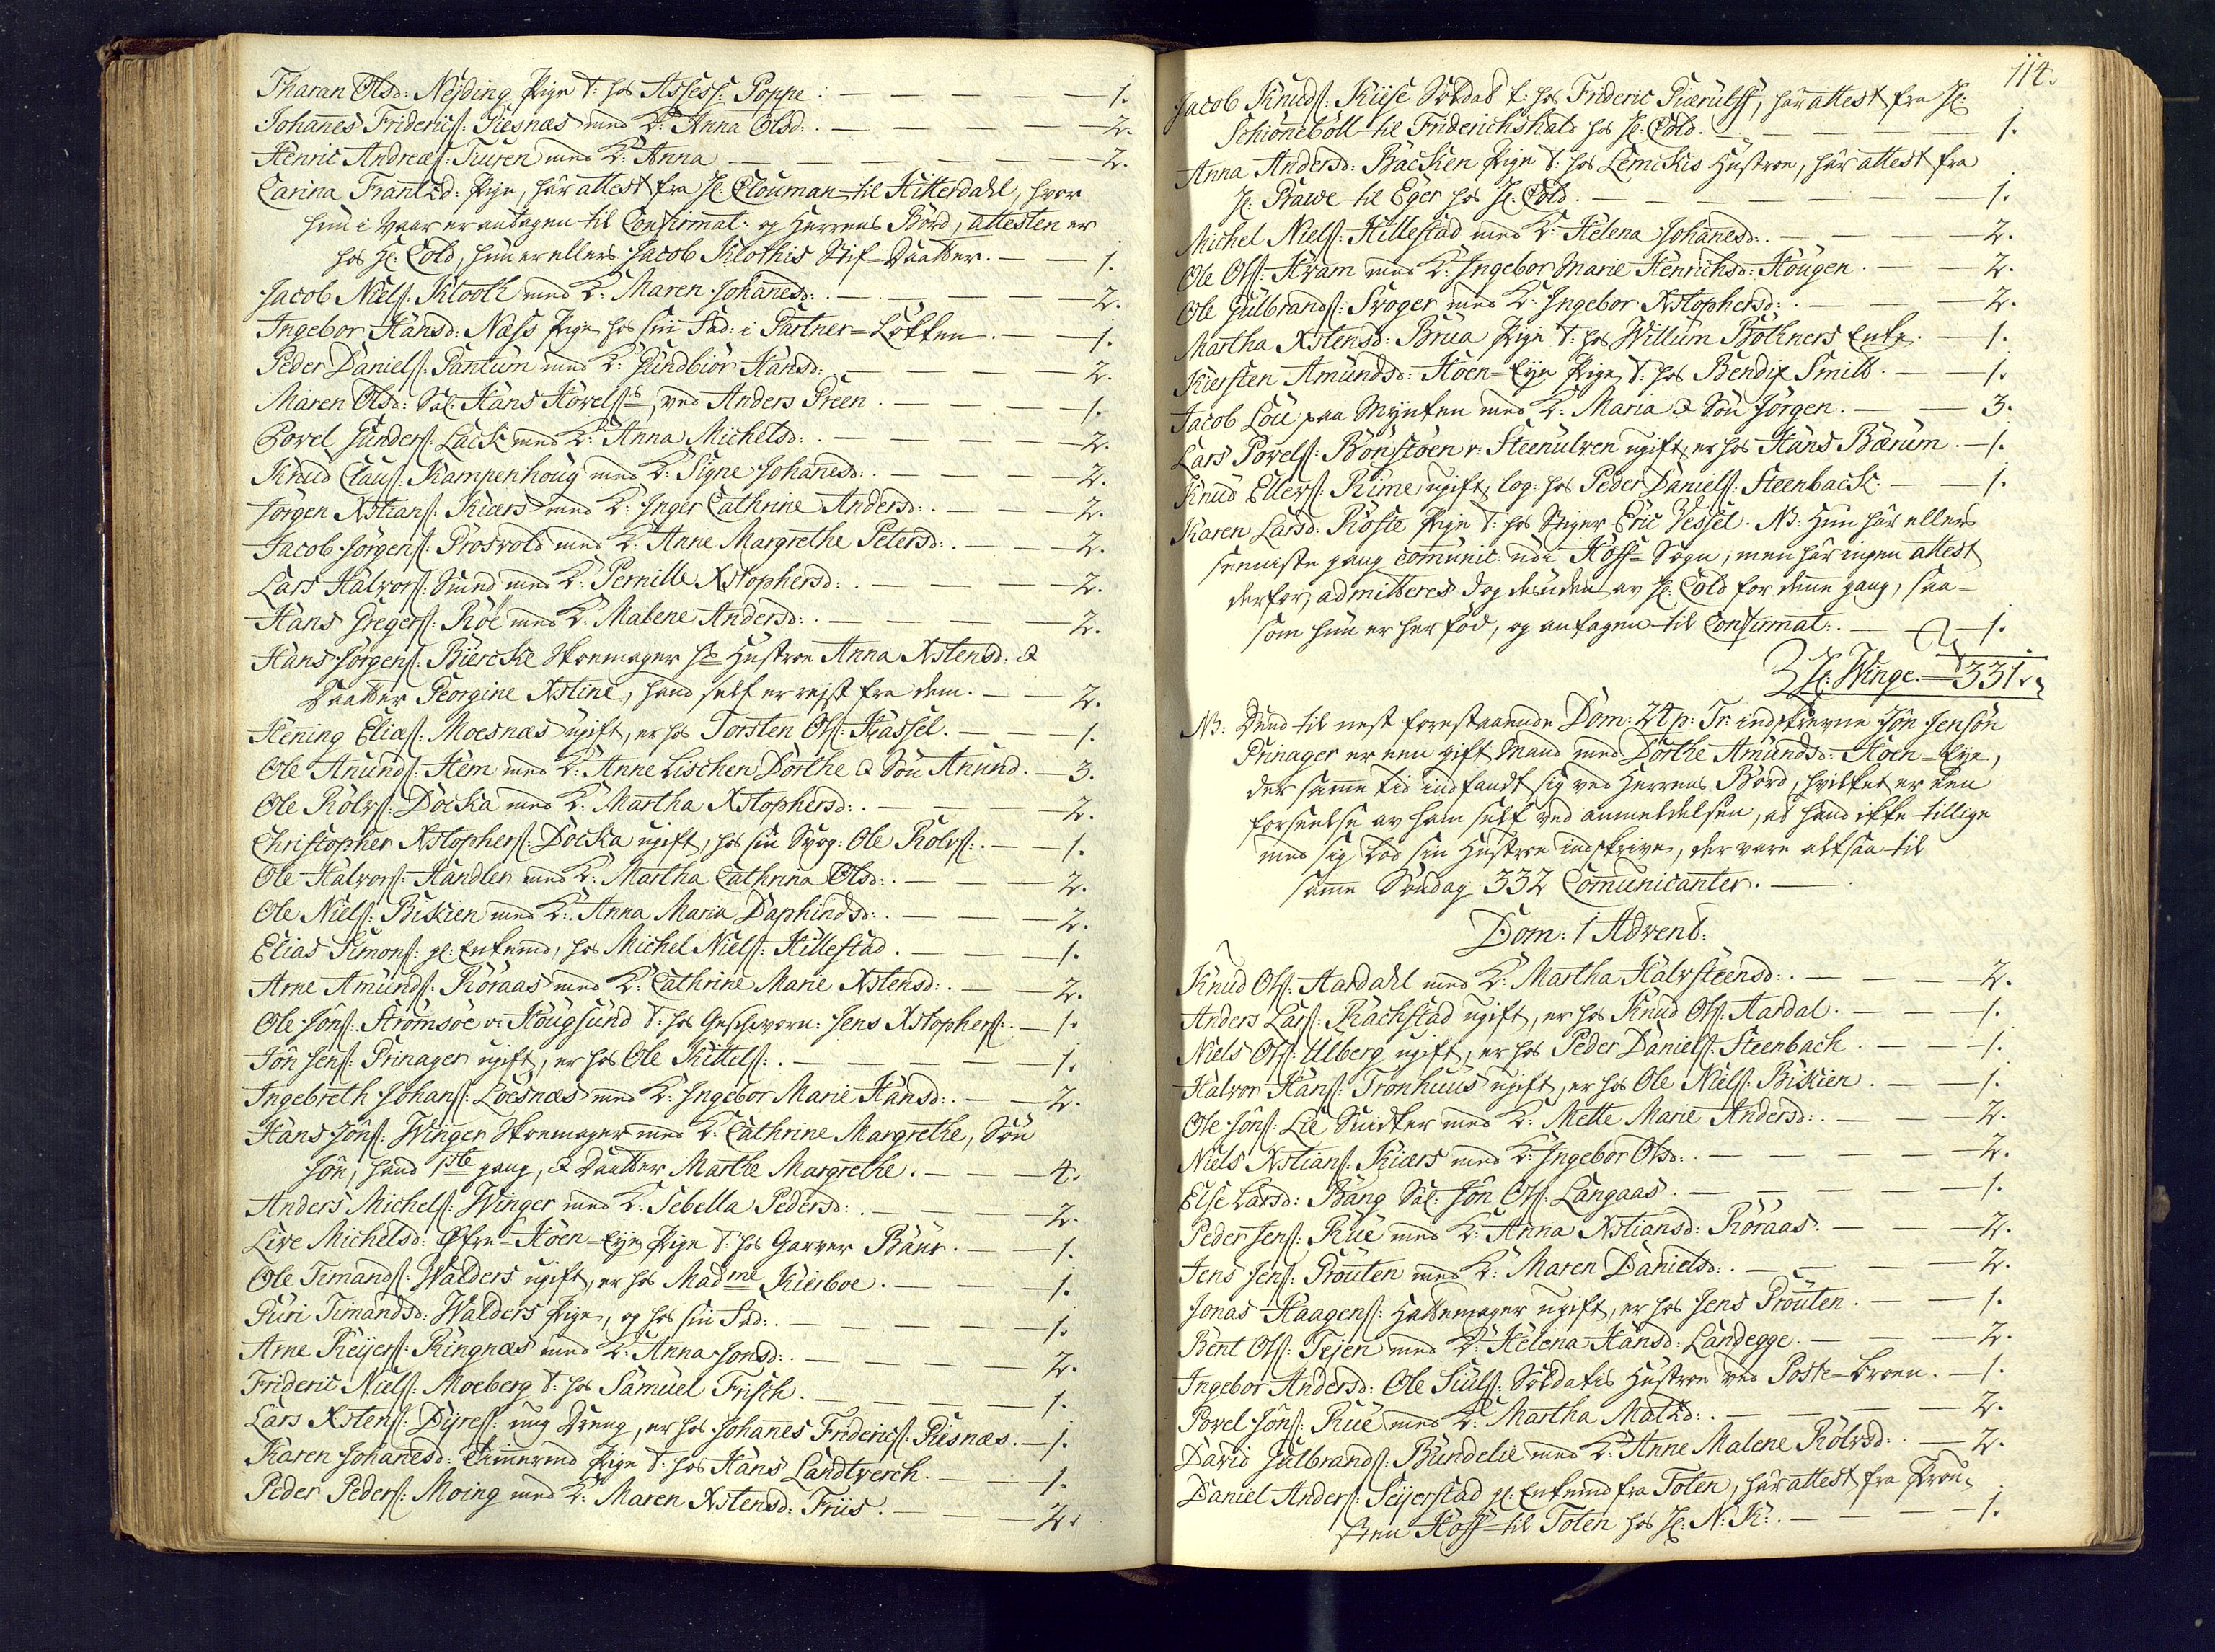 Tharan Olsd: Nejding Pige t: hos Assess: Poppe : — 1.
Johanes Friderics: Piesnæs med K: Anna Olsd: . — 2.
Henric Andreæs: Furen med K: Anna . — 2.
Carina Frantzd: Pige, har attest fra Hr: Clouman til Hitterdahl, hvor
hun i Vaar er antagen til Confirmat: og Herrens Bord, attesten er
hos Hr: Cold, hun er ellers Jacob Klothis Stif-Daatter. — 1.
Jacob Niels: Klooth med K: Maren Johanesd: . — 2.
Ingebor Hansd: Næss Pige hos sin Fad: i Gartner-Løkken . — 1.
Peder Daniels: Pantum med K: Gundbiør Hansd: — 2.
Maren Olsd: Sal: Hans Hovels: ved Anders Preen . — 1.
Povel Gunders: Lack med K: Anna Michelsd: . — 2.
Knud Claus: Kampenhoug med K: Signe Johanesd: . — 2.
Jørgen Xstians: Kiærs med K: Inger Cathrine Andersd: . — 2.
Jacob Jørgens: Prosvold med K: Anne Margrethe Petersd: . — 2.
Lars Halvors: Smed med K: Pernille Xstophersd: . — 2.
Hans Gregers: Røe med K: Malene Andersd: . — 2.
Hans Jørgens: Biercke Skoemager hs Hustroe Anna Xstensd: &
Daatter Georgine Xstine, hand self er rejst fra dem. — 2.
Hening Elias: Moesnæs ugift, er hos Torsten Ols: Hassel. — 1.
Ole Anunds: Hem med K: Anne Lischen Dorthe & Søn Anund. — 3.
Ole Rolvs: Docka med K: Martha Xstophersd: . — 2.
Christopher Xstophers: Docka ugift, hos sin Svog: Ole Rolvs: . — 1.
Ole Halvors: Handler med K: Martha Cathrina Olsd: . — 2.
Ole Niels: Biskien med K: Anna Maria Daphindsd: . — 2.
Elias Simons: gl: Enkemd, hos Michel Niels: Hillestad . — 1.
Arne Amunds: Røraas med K: Cathrine Marie Xstensd: . — 2.
Ole Jøns: Strømsøe v: Hougsund t: hos Geschworn: Jens Xstophers: . — 1.
Jøn Jens: Prinager ugift, er hos Ole Kittels: . — 1.
Ingebreth Johans: Loesnæs med K: Ingebor Marie Hansd: . — 2.
Hans Jøns: Winger Skoemager med K: Cathrine Margrethe, Søn
Jøn, hand 1ste gang, & Daatter Marthe Margrethe . — 4.
Anders Michels: Winger med K: Sebella Pedersd: . — 2.
Live Michelsd: Øfre-Hoen-Eje Pige t: hos Garver Baur . — 1.
Ole Timands: Walders ugift, er hos Madme Kierboe . — 1.
Guri Timandsd: Walders Pige, og hos sin Fad: . — 1.
Arne Reijers: Ringnæs med K: Anna Jonsd: . — 2.
Frideric Niels: Moeberg t: hos Samuel Frisch . — 1.
Lars Xstens: Dyres: ung Dreng, er hos Johanes Friderics: Piesnæs. — 1.
Karen Johanesd: Timermd Pige t: hos Hans Landtverch . — 1.
Peder Peders: Moing med K: Maren Xstensd: Friis . — 2.
114.
Jacob Knuds: Kiise Soldat t: hos Frideric Piærulff, har attest fra Hr:
Schiønebøll til Friderichshald hos Hr: Cold . — 1.
Anna Andersd: Backen Pige t: hos Lemickis Hustroe, har attest fra
Hr: Prawe til Eger hos Hr: Cold . — 1.
Michel Niels: Hillestad med K: Helena Johanesd: . — 2.
Ole Ols: Kram med K: Ingebor Marie Henrichsd: Hougen . — 2.
Ole Gulbrands: Svoger med K: Ingebor Xstophersd: . — 2.
Martha Xstensd: Brua Pige t: hos Willum Bøthners Enke . — 1.
Kiersten Amundsd: Hoen-Eje Pige t: hos Bendix Smitt . — 1.
Jacob Lou paa Mynten med K: Maria & Søn Jørgen . — 3.
Lars Povels: Bonstøen v: Steenulven ugift, er hos Hans Bærum . — 1.
Knud Ellevs: Rime ugift, log: hos Peder Daniels: Steenback . — 1.
Karen Larsd: Røste Pige t: hos Stiger Eric Vessel. NB: Hun har ellers
seeniste gang comunic: udi Hoff-Sogn, men har ingen attest
derfor, admitteres dog desuden av Hr: Cold for denne gang, saa-
som hun er her fød, og antagen til Confirmat: . — 1.
Hr: Winge. — 331.
NB: Dend til nest forestaaende Dom: 24 p: Tr: indskrevne Jøn Jensøn
Prinager er een gift Mand med Dorthe Amundsd: Hoen-Eje,
der same tid indfandt sig ved Herrens Bord, hvilket er een
forseelse av ham self ved anmeldelsen, at hand ikke tillige
med sig lod sin Hustroe indskrive, der vare altsaa til
same Søndag 332 Comunicanter. —
Dom: 1 Advent:
Knud Ols: Aardahl med K: Martha Halvsteensd: . — 2.
Anders Lars: Rachstad ugift, er hos Knud Ols: Aardal . — 1.
Niels Ols: Ulberg ugift, er hos Peder Daniels: Steenbach . — 1.
Halvor Hans: Tronhuus ugift, er hos Ole Niels: Biskien . — 1.
Ole Jøns: Lie Snidker med K: Mette Marie Andersd: . — 2.
Niels Xstians: Kiærs med K: Ingebor Olsd: . — 2.
Else Larsd: Bang Sal: Jøn Ols: Langaas . — 1.
Peder Jens: Rue med K: Anna Xstiansd: Røraas . — 2.
Jens Jens: Prouten med K: Maren Danielsd: . — 2.
Jonas Haagens: Hattemager ugift, er hos Jens Prouten . — 1.
Bent Ols: Tejen med K: Helena Hansd: Landegge . — 2.
Ingebor Andersd: Ole Siuls: Soldatis Hustroe ved Poste-broen . — 1.
Povel Jøns: Rue med K: Martha Matzd: . — 2.
David Gulbrands: Bundelie med K: Anne Malene Rolvsd: . — 2.
Daniel Anders: Seijerstad gl: Enkemd fra Toten, har attest fra Prou-
sten Hoff til Toten hos Hr: N: K: . — 1.